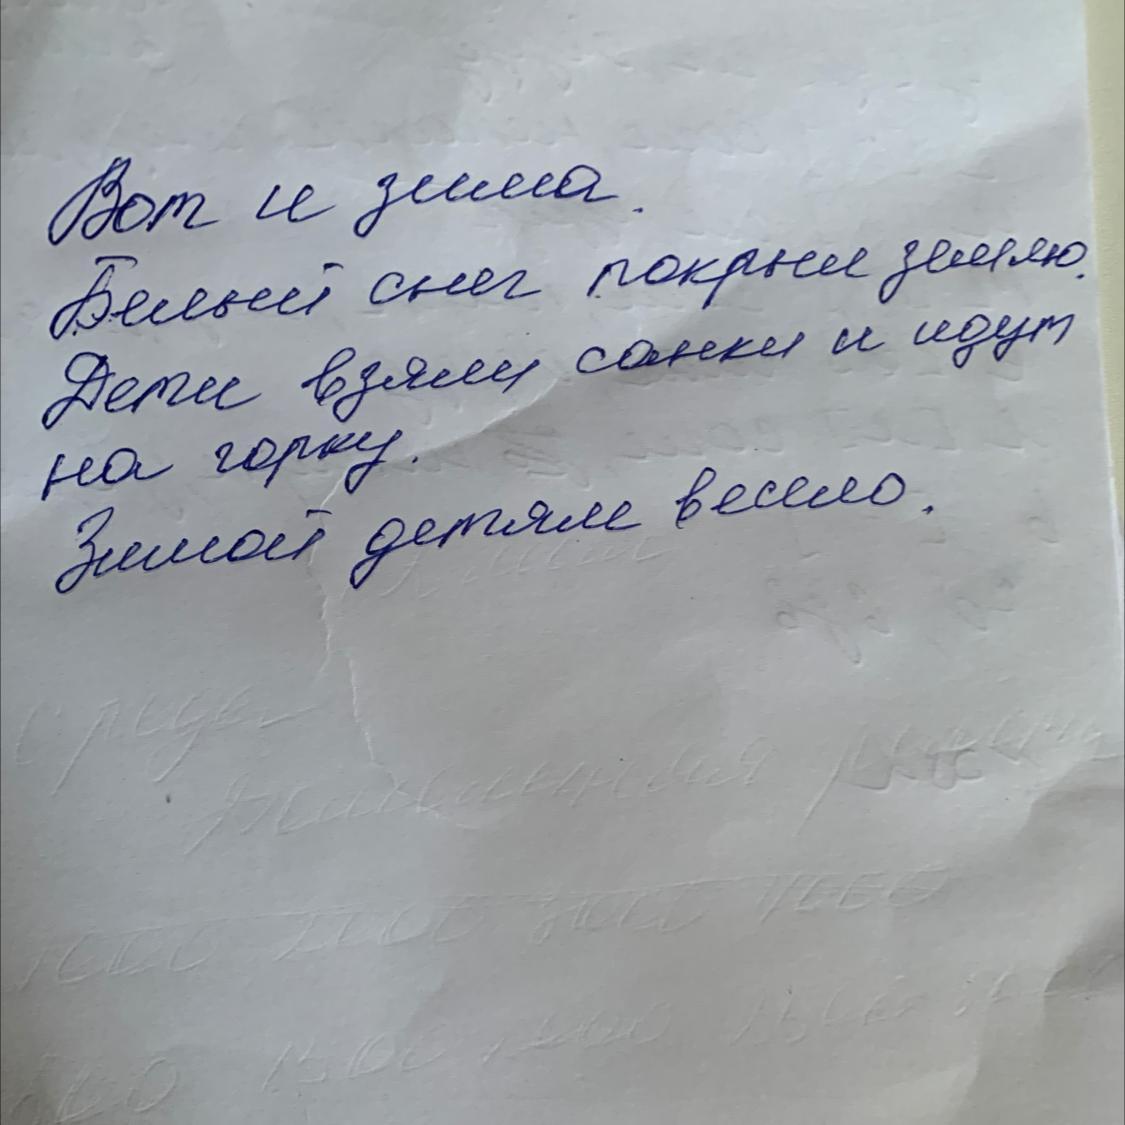 Вот и зима.
Белый снег покрыл землю.
Дети взяли санки и идут
на горку.
Зимой детям весело.